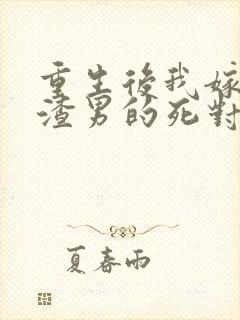 重生後我嫁
渣男的死對
夏春雨